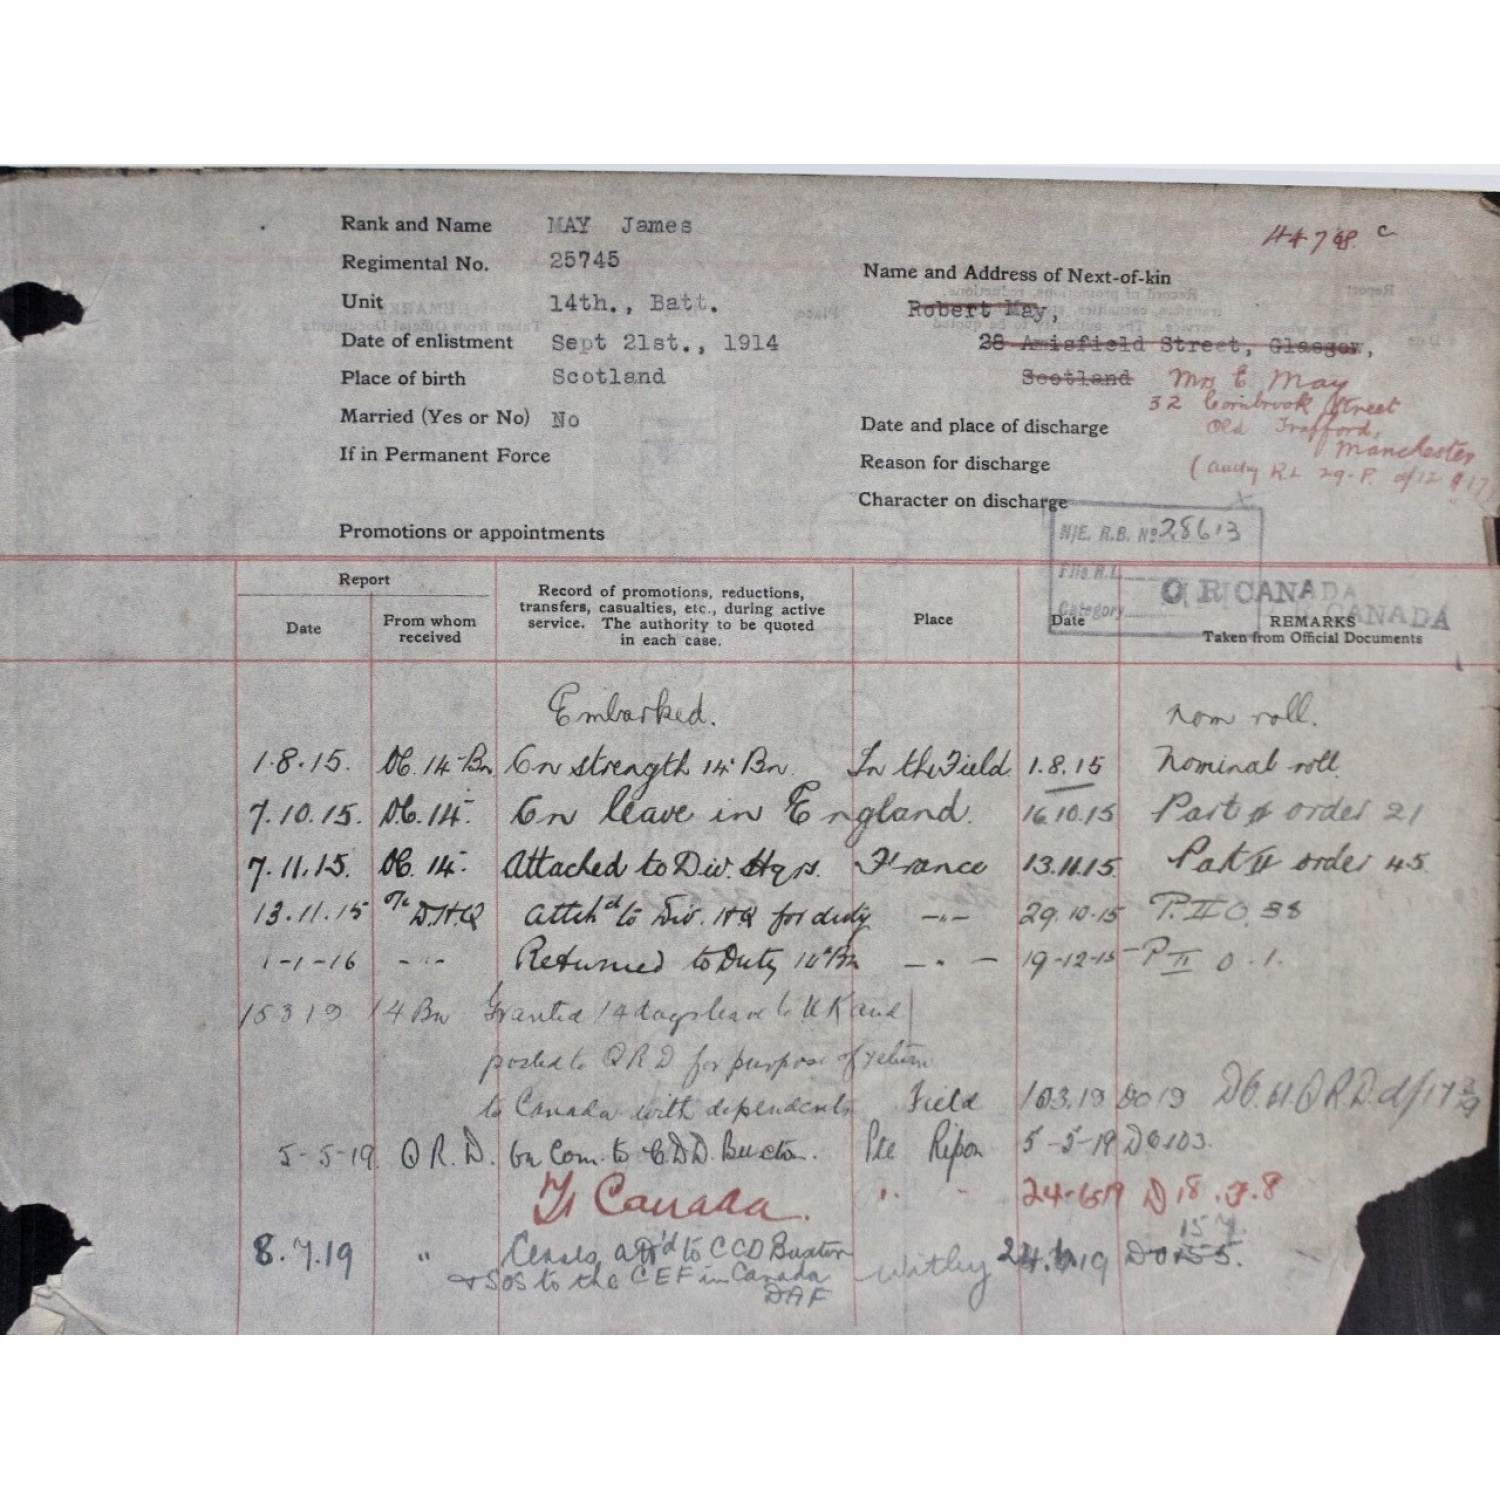 44768 c
Rank and Name MAY James
Regimental No. 25745
Unit 14th., Batt.
Date of enlistment Sept 21st., 1914
Place of birth Scotland
Married (Yes or No) No
If in Permanent Force
Promotions or appointments
Name and Address of Next-of-kin
Robert May,
28 Amisfield Street, Glasgow,
Scotland Mrs E May
32 Cornbrook Street
Old Trafford,
Manchester
Date and place of discharge
Reason for discharge
Character on discharge
(Auth R.L 29-P.
N/E. R.B. No 28613
File R.L.
Category
O R CANADA
CANADA
Report
Date
From whom received
Record of promotions, reductions,
transfers, casualties, etc., during active
service. The authority to be quoted
in each case.
Place
Date
REMARKS
Taken from Official Documents
Embarked. Nom roll.
1.8.15. OC. 14 Bn On strength 14 Bn. In the Field 1.8.15 Nominal roll
7.10.15. OC. 14. On leave in England. 16.10.15 Part II order 21
7.11.15. OC. 14. Attached to Div. Hqrs. France 13.11.15 Part II order 45
13.11.15 O/c D.H.Q Attchd to Div. HQ for duty -"- 29.10.15 P.II O. 38
1-1-16 -"- Returned to Duty 14th Bn -"- 19-12-15 P II O.1.
15 3 19 14 Bn Granted 14 days leave to UK and
posted to QRD for purpose of return
to Canada with dependents Field 10.3.19 DO 19
5-5-19. Q R. D. On Com. to CDD. Buxton. Pte Ripon 5-5-19 DO 103.
To Canada. " - 24-6-19 D 18. F. 8
157.
8.7.19 " Ceases attd to CCD Buxton Witley 24.6.19 DO 155.
& SOS to the CEF in Canada
DAF